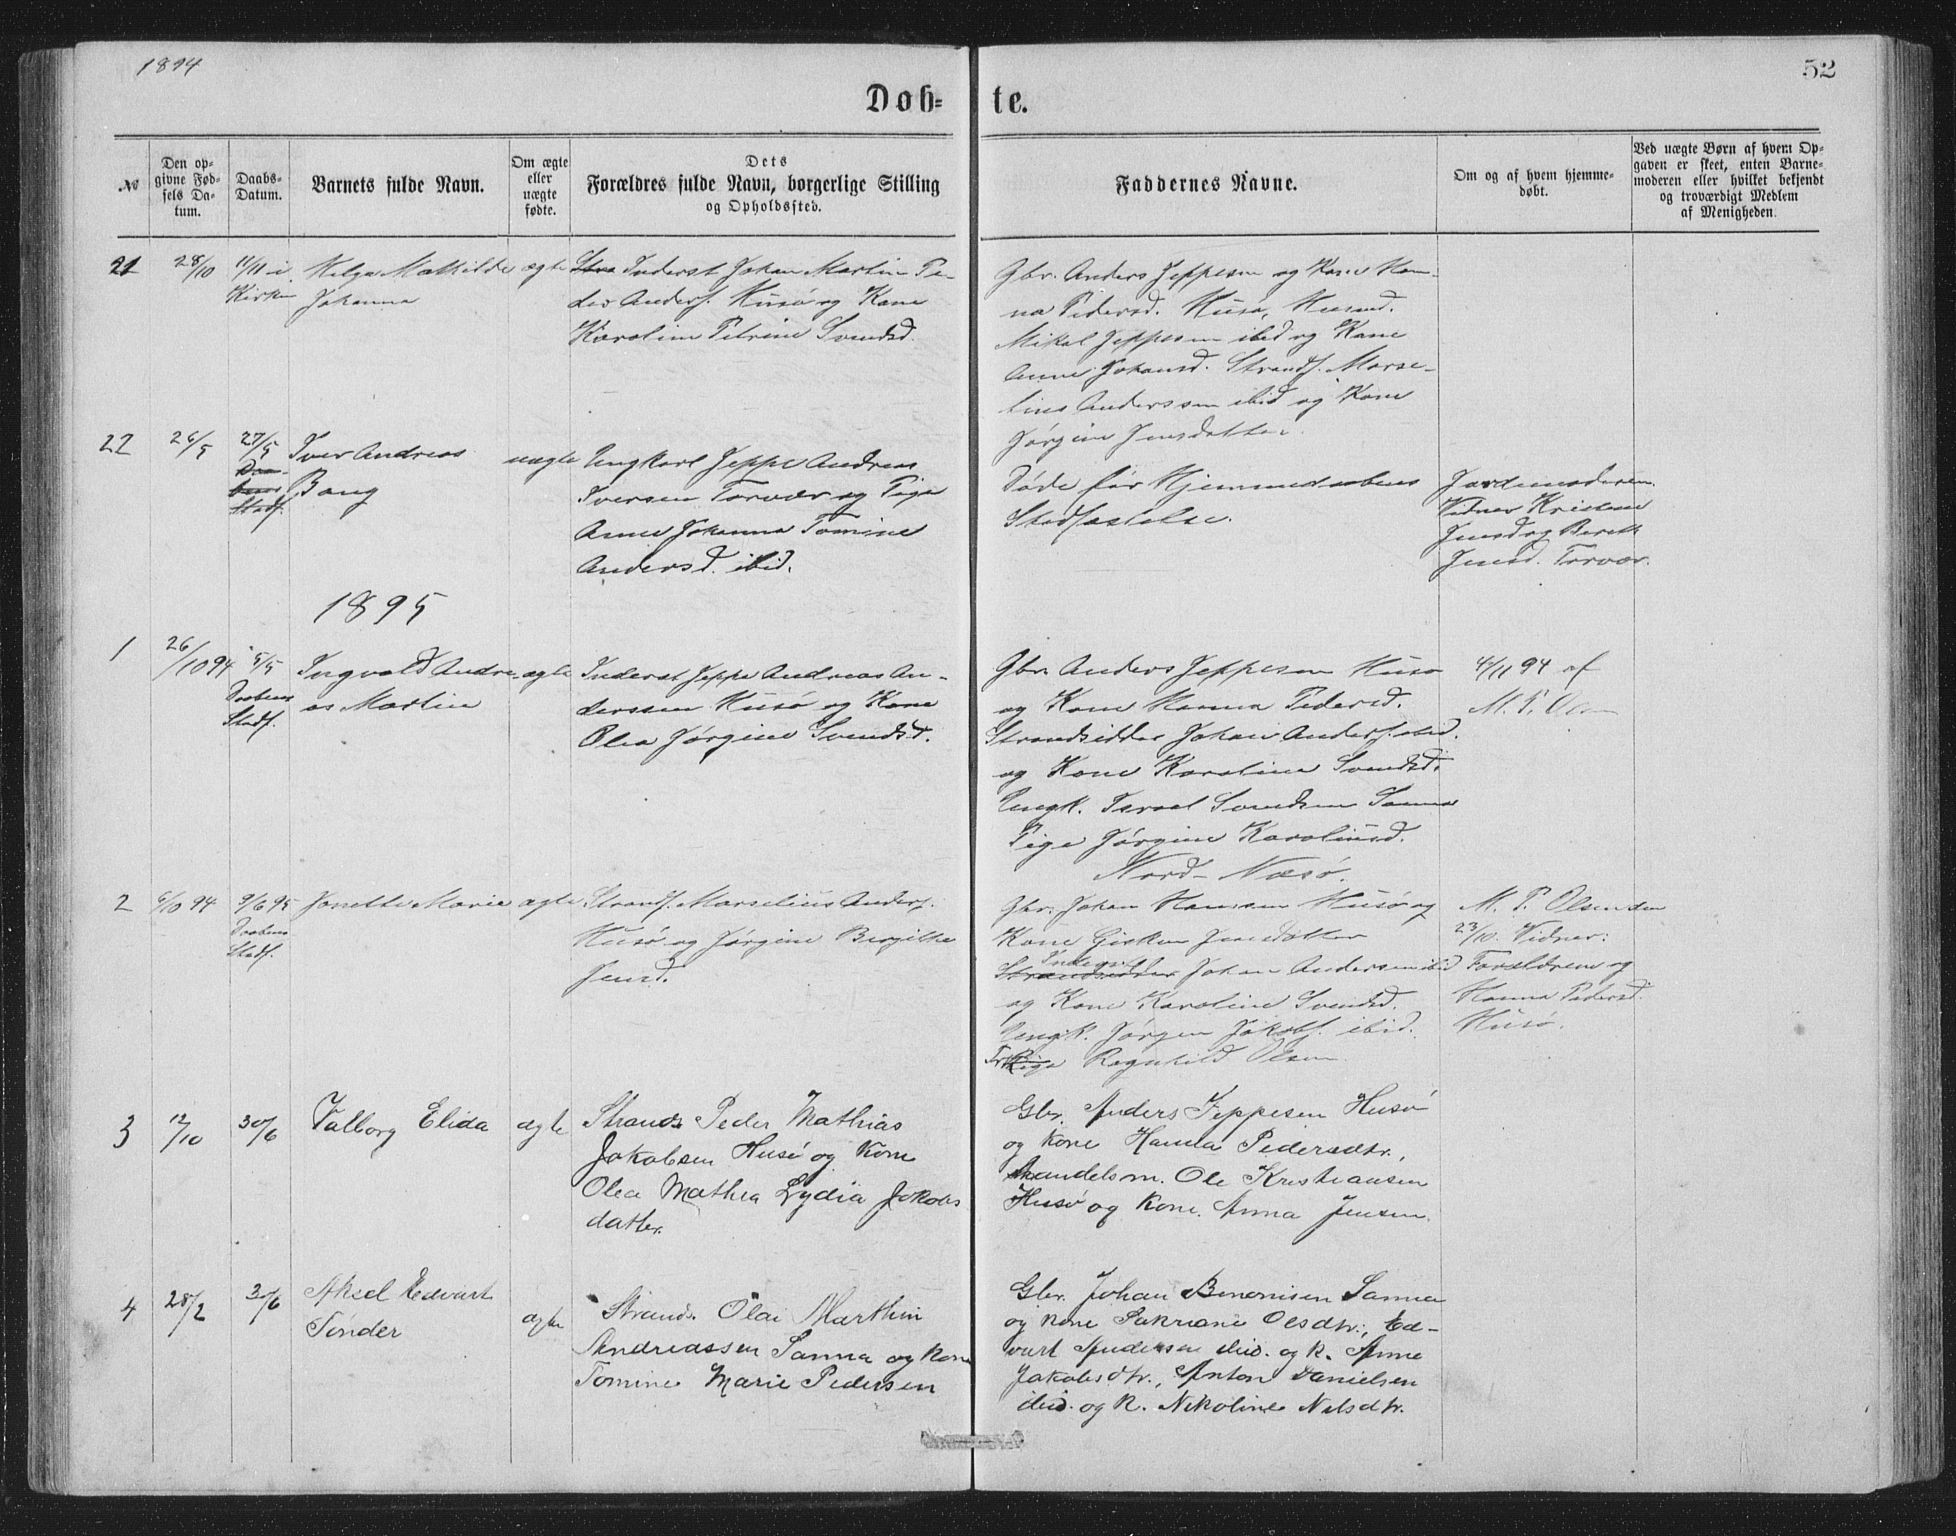 1894
52
Døb-
te.
№
Den op-
givne Fød-
sels Da-
tum.
Daabs-
Datum.
Barnets fulde Navn.
Om ægte
eller
uægte
fødte.
Dets
Forældres fulde Navn, borgerlige Stilling
og Opholdssted.
Faddernes Navne.
Om og af hvem hjemme-
døbt.
Ved uægte Børn af hvem Op-
gaven er skeet, enten Barne-
moderen eller hvilket bekjendt
og troværdigt Medlem
af Menigheden.
21
28/10
11/11 i
Kirken
Helga Mathilde
Johanna
ægte
Stra Inderst Johan Martin Pe-
der Anders. Husø og Kone
Karolin Petrine Svendsd.
Gbr. Anders Jeppesen og Kone Han-
na Pedersd. Husø, Husmd.
Mikal Jeppesen ibid og Kone
Anne Johansd. Strands. Marse-
lius Anderssen ibid og Kone
Jørgine Jensdatter.
22
26/5
27/5
Daa-
bens
Stadf.
Iver Andreas
Bang
uægte
Ungkarl Jeppe Andreas
Iversen Torvær og Pige
Anne Johanna Tomine
Andersd. ibid.
Døde før Hjemmedaabens
Stadfæstelse.
Jordemoderen.
Vidner Kristene
Jensd og Bereth
Jensd. Torvær.
1895
1
26/10 94
5/5
Daabens
Stadf.
Ingvald Andre-
as Martin
ægte
Inderst Jeppe Andreas An-
derssen Husø og Kone
Olea Jørgine Svendsd.
Gbr. Anders Jeppesen Husø
og Kone Hanna Pedersd.
Strandsidder Johan Anders. ibid.
og Kone Karoline Svendsd.
Ungk. Israel Svendsen Sanna
Pige Jørgine Karoliusd.
Nord-Næsø.
4/11 94 af
M. P. Olsen
2
6/10 94
9/6 95
Daabens
Stadf.
Jonette Marie
ægte
Strands. Marselius Anders.
Husø og Jørgine Bergitte
Jensd.
Gbr. Johan Hansen Husø og
Kone Gisken Jensdatter
Inderst
Strandsidder Johan Andersen ibid
og Kone Karoline Svendsd.
Ungk. Jørgen Jakobs. ibid.
Pige Ragnhild Olsen
M. P. Olsen den
23/10. Vidner:
Forældrene og
Hanna Pedersd.
Husø.
3
12/10
30/6
Valborg Elida
ægte
Strands Peder Mathias
Jakobsen Husø og Kone
Olea Mathea Lydia Jakobs
datter.
Gbr. Anders Jeppesen Husø
og Kone Hanna Pedersdtr.,
Handelsm. Ole Kristiansen
Husø og Kone Anna Jensen.
4
28/2
30/6
Aksel Edvart
Tønder
ægte
Strands. Olai Marthin
Andreassen Sanna og Kone
Tomine Marie Pedersen
Gbr. Johan Benonisen Sanna
og Kone Sakriane Olsdtr., Ed-
vart Andersen ibid. og K. Anne
Jakobsdtr., Anton Danielsen
ibid. og K. Nikoline Nilsdtr.